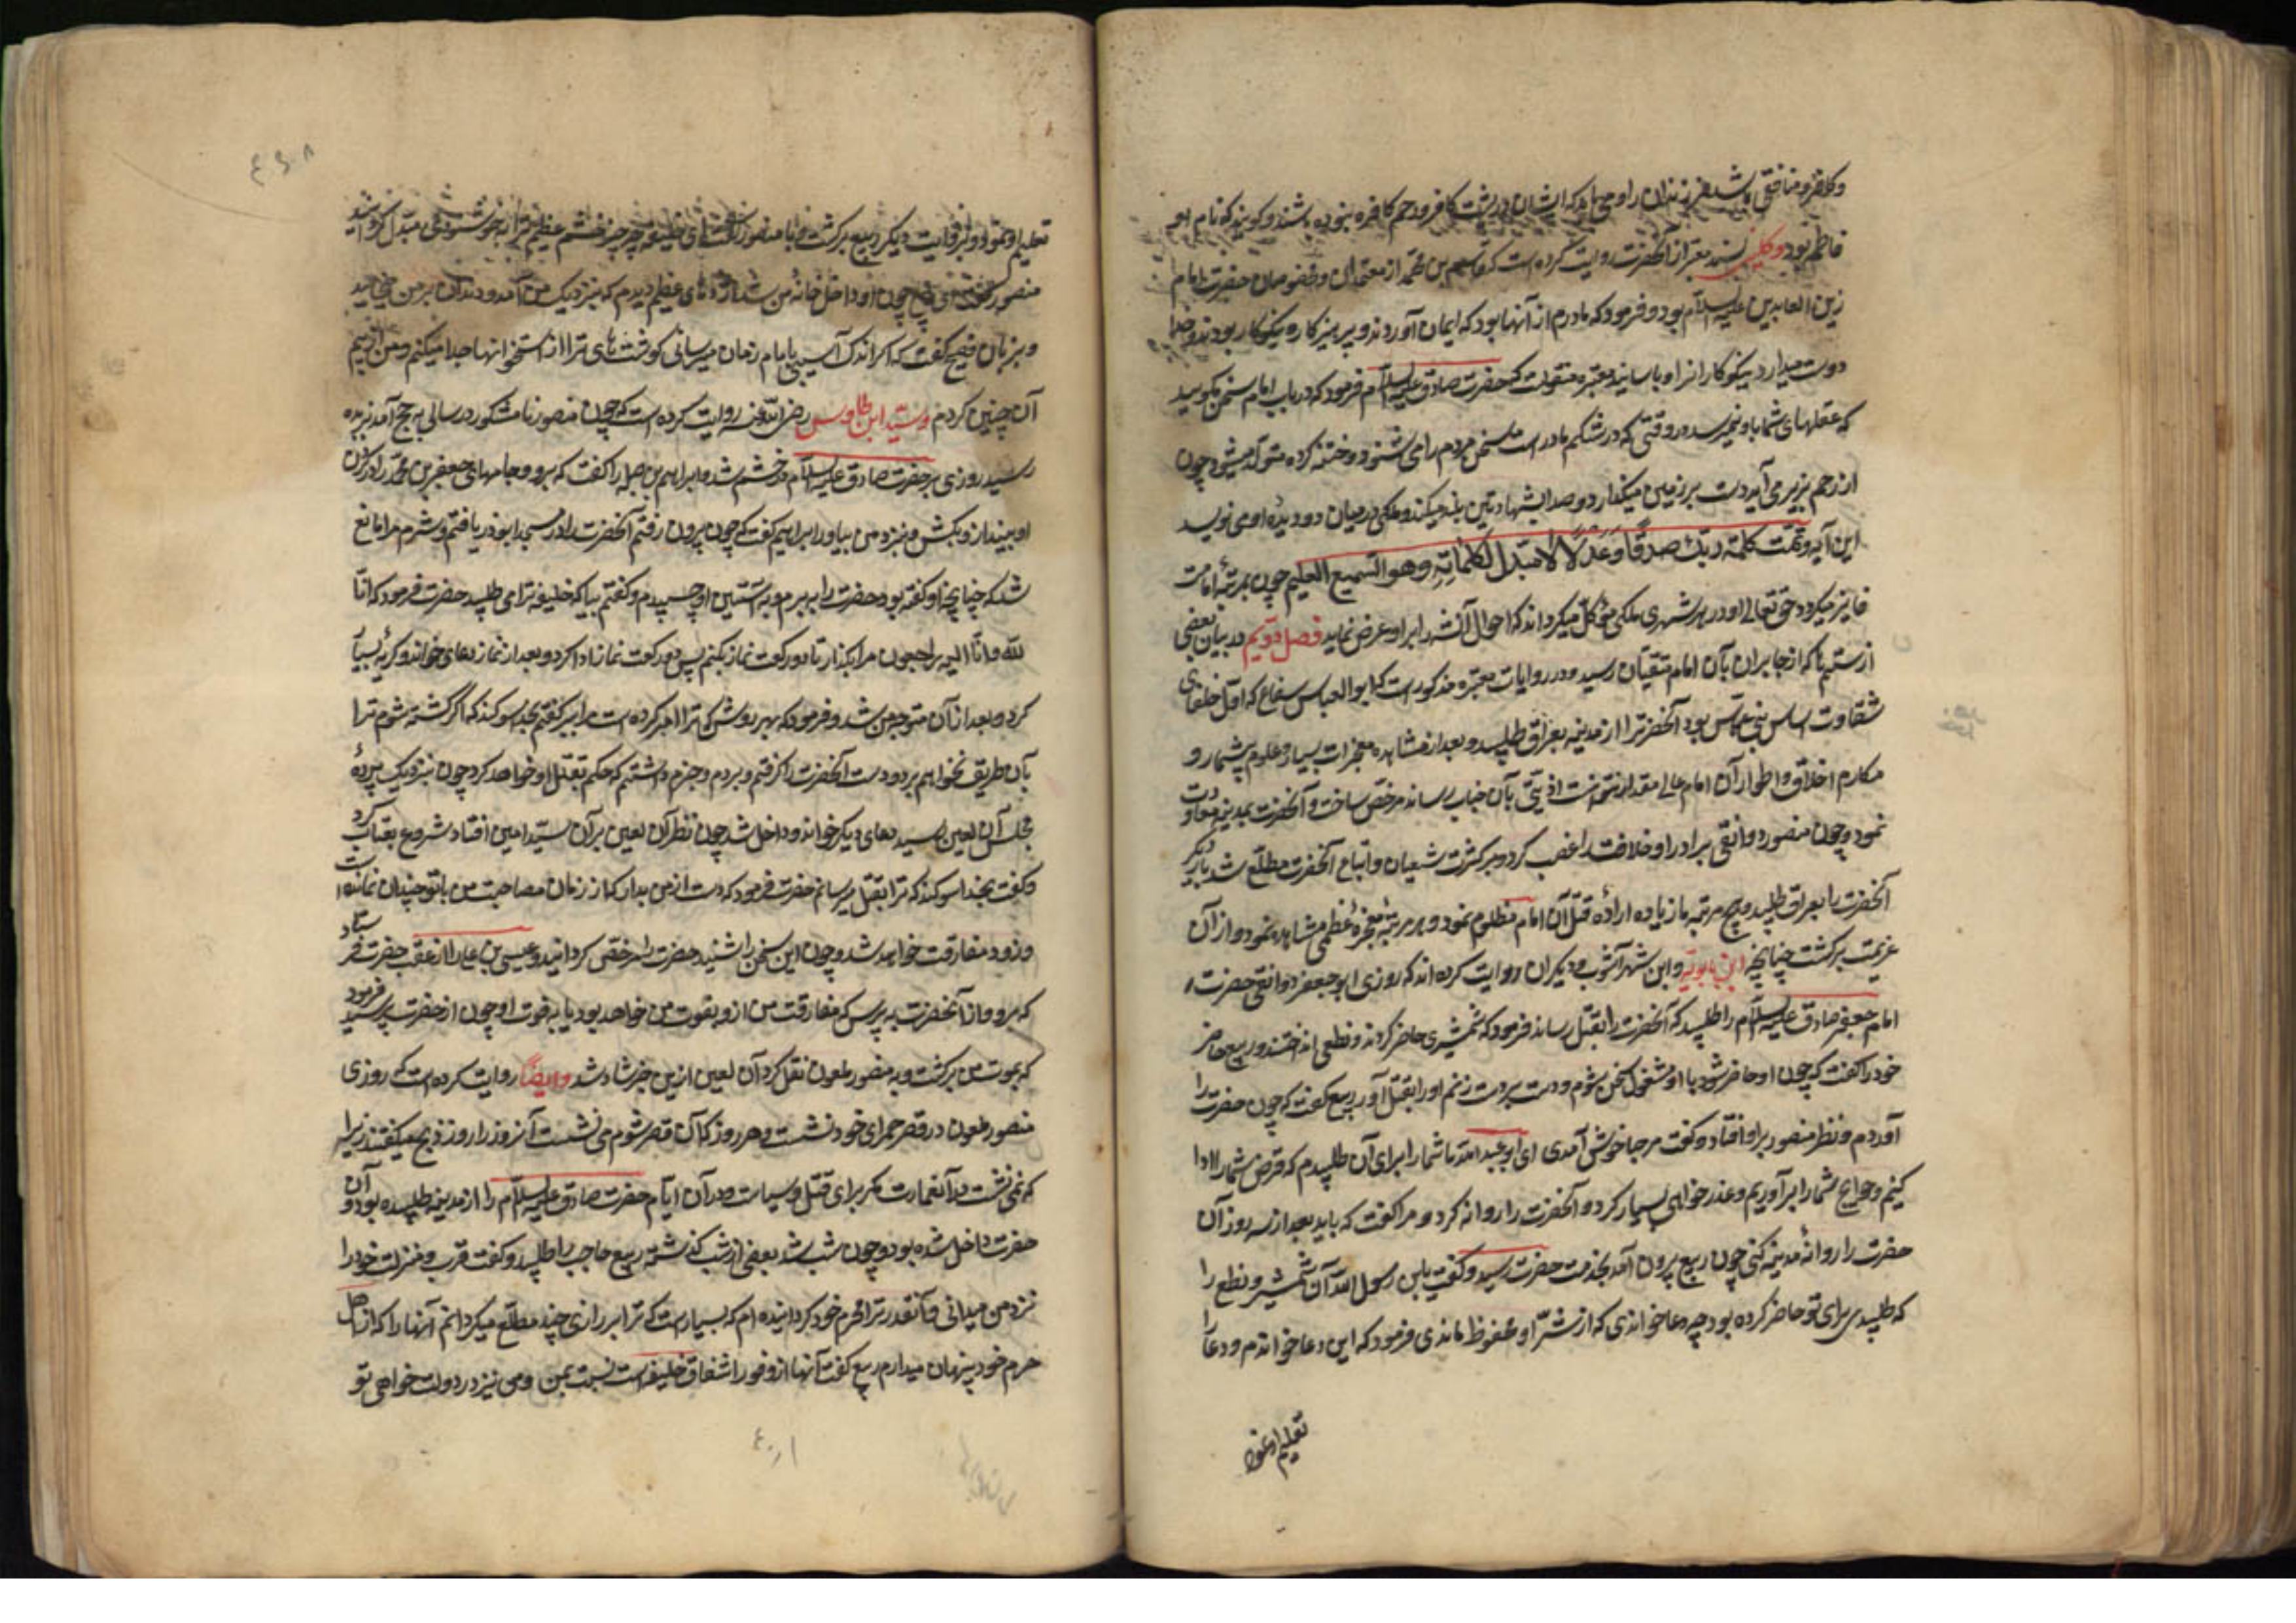 وکافر و منافقی باشد فرزندان را و می‌باید که ایشان در پشت کافر و رحم کافره نبوده باشند و کویند که نام
فاطمه بود و کلینی بسند معتبر از آنحضرت روایت کرده است که قاسم بن محمد از معتمدان و مخصوصان حضرت امام
زین العابدین علیه السلام بود و فرمود که مادرم از آنها بود که ایمان آوردند و پرهیزکار و نیکوکار بودند و خدا
دوست میدارد نیکوکارانرا و باسانید معتبره منقولست که حضرت صادق علیه السلام فرمود که در باب امام سخن مکویید
که عقلهای شما باو نمیرسد در وقتی که در شکم مادر است سخن مردم را می شنود و ختنه کرده متولد میشود چون
از رحم بزیر می آید دست بر زمین میکذارد و صدا بشهادتین بلند میکند و ملکی در میان دو دیده او می نویسد
این آیه و تمت کلمة ربک صدقا وعدلا لا مبدل لکلماته وهو السمیع العلیم چون بمرتبهٔ امامت
فایز میکردد حق تعالی او در هر شهری ملکی موکل میکرداند که احوال آنشهر را بر او عرض نماید فصل دویم در بیان بعضی
از ستمها که از جابران بآن امام متقیان رسید و در روایات معتبره مذکور است که ابو العباس سفاح که اول خلفای
شقاوت اساس بنی عباس بود آنحضرترا از مدینه بعراق طلبید و بعد از مشاهده معجزات بسیار و علوم بیشمار و
مکارم اخلاق و اطوار آن امام عالی مقدار نتوانست اذیتی بآن جناب رساند مرخص ساخت و آنحضرت بمدینه معاودت
نمود و چون منصور دوانقی برادر او خلافت را غصب کرد و بر کثرت شیعیان و اتباع آنحضرت مطلع شد بار دیکر
آنحضرت را بعراق طلبید و پنج مرتبه یا زیاده ارادهٔ قتل آن امام مظلوم نمود و هر مرتبه معجزهٔ عظمی مشاهده نمود و از آن
عزیمت برکشت چنانچه ابن بابویه و ابن شهر آشوب و دیکران روایت کرده اند که روزی ابو جعفر دوانقی حضرت
امام جعفر صادق علیه السلام را طلبید که آنحضرت را بقتل رساند فرمود که شمشیری حاضر کردند و نطعی انداختند و ربیع حاضر
خود را کفت که چون او حاضر شود با او مشغول سخن شوم و دست بر دست زنم او را بقتل آور ربیع کفت که چون حضرت را
آوردم و نظر منصور بر او افتاد و کفت مرحبا خوش آمدی ای ابو عبد الله ما شما را برای آن طلبیدیم که قرض شما را ادا
کنیم و حوایج شما را برآوریم و عذر خواهی بسیار کرد و آنحضرت را روانه کرد و مرا کفت که باید بعد از سه روز آن
حضرت را روانهٔ مدینه کنی چون ربیع بیرون آمد بخدمت حضرت رسید و کفت یابن رسول الله آن شمشیر و نطع را
که طلبید برای تو حاضر کرده بود چه دعا خواندی که از شر او محفوظ ماندی فرمود که این دعا خواندم و دعا را
تعلیم او نمود
تعلیم او نمود و بروایت دیکر ربیع برکشت و با منصور کفت ای خلیفه چه چیز خشم عظیم ترا به خوشنودی مبدل کردانید
منصور کفت ای ربیع چون او داخل خانهٔ من شد اژدهای عظیم دیدم که بنزدیک من آمد و دندان بر من میخایید
و بزبان فصیح کفت که اکر اندک آسیبی بامام زمان میرسانی کوشت های ترا از استخوانها جدا میکنم و من از بیم
آن چنین کردم و سید ابن طاوس رضی الله عنه روایت کرده است که چون منصور نامشکور در سالی به حج آمد بربذه
رسید روزی بر حضرت صادق علیه السلام در خشم شد و ابراهیم بن جبله را کفت که برو و جامهای جعفر بن محمد را در کردن
او بینداز و بکش و بنزد من بیاور ابراهیم کفت که چون بیرون رفتم آنحضرت را در مسجد ابوذر یافتم و شرم مرا مانع
شد که چنانچه او کفته بود حضرت را ببرم و به آستین او چسبیدم و کفتم بیا که خلیفه ترا می طلبد حضرت فرمود که انا
لله وانا الیه راجعون مرا بکذار تا دو رکعت نماز بکنم پس دو رکعت نماز ادا کرد و بعد از نماز دعای خواند و کریهٔ بسیار
کرد و بعد از آن متوجه من شد و فرمود که بهر روش که ترا امر کرده است مرا ببر کفتم بخدا سوکند که اکر کشته شوم ترا
بآن طریق نخواهم برد و دست آنحضرت را کرفتم و بردم و جزم داشتم که حکم بقتل او خواهد کرد چون نزدیک پردهٔ
مجلس آن لعین رسید دعای دیکر خواند و داخل شد چون نظر آن لعین بر آن سید امین افتاد شروع بعتاب کرد
و کفت بخدا سوکند که ترا بقتل میرسانم حضرت فرمود که دست از من بدار که از زمان مصاحبت من با تو چندان نمانده است
و زود مفارقت خواهد شد و چون این سخن را شنید حضرت را مرخص کردانید و عیسی بن علی را از عقب حضرت فرستاد
که برو و از آنحضرت به پرس که مفارقت من از و بفوت من خواهد بود یا به فوت او چون از حضرت پرسید فرمود
که بموت من برکشت و به منصور ملعون نقل کرد آن لعین از این خبر شاد شد وایضا روایت کرده است که روزی
منصور ملعون در قصر حمرای خود نشست و هر روز که آن قصر شوم می نشست آنروز را روز ذبح میکفتند زیرا
که نمی نشست در آنعمارت مکر برای قتل و سیاست و در آن ایام حضرت صادق علیه السلام را از مدینه طلبیده بود و آن
حضرت داخل شده بود و چون شب شد بعضی از شب کذشته ربیع حاجب را طلبید و کفت قرب و منزلت خود را
نزد من میدانی و آنقدر ترا محرم خود کردانیده ام که بسیار است که ترا بر رازی چند مطلع میکردانم آنها را که از اهل
حرم خود پنهان میدارم ربیع کفت آنها از وفور اشفاق خلیفه است نسبت بمن و من نیز در دولت خواهی تو